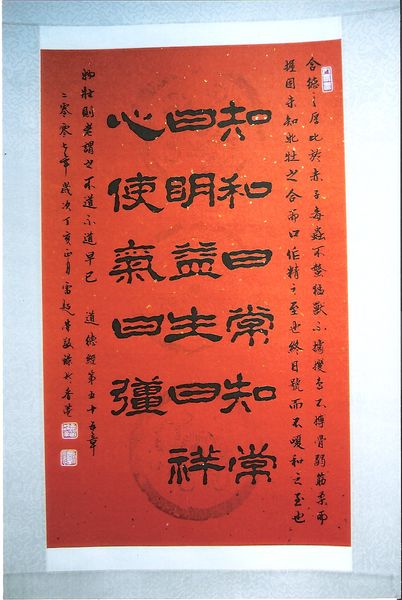 含德之厚比於赤子毒蟲不螫猛獸不據攫鳥不搏骨弱筋柔而
握固未知牝牡之合而口作精之至也終日號而不嗄和之至也
知和曰常知常
曰明益生曰祥
心使氣曰彊
物壯則老謂之不道不道早已 道德經第五十五章
二零零七年歲次丁亥正月雷超榮敬錄於香港